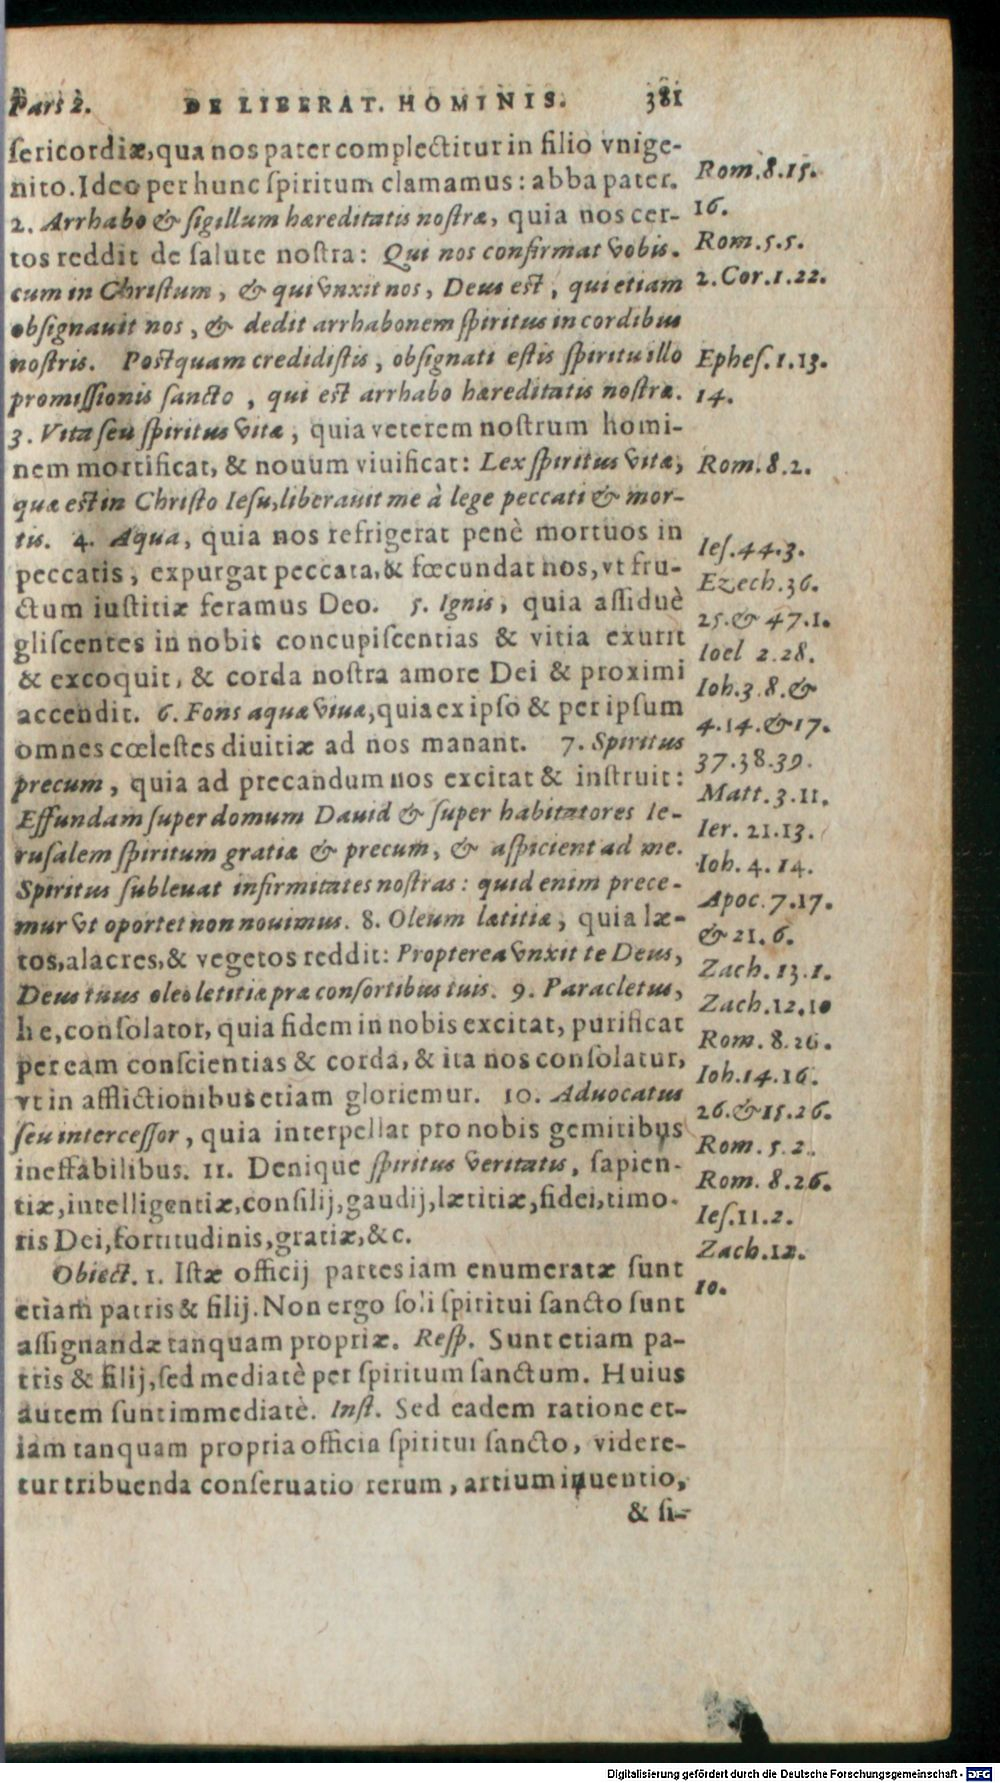 Part 2. DE LIBERAT. HOMINIS. 381
ſericordiæ, qua nos pater complectitur in filio vnige-
nito. Ideo per hunc ſpiritum clamamus: abba pater.
2. Arrhabo & ſigillum hæreditatis noſtræ, quia nos cer-
tos reddit de ſalute noſtra: Qui nos confirmat vobis-
cum in Chriſtum, & qui vnxit nos, Deus eſt, qui etiam
obſignauit nos, & dedit arrhabonem ſpiritus in cordibus
noſtris. Poſtquam credidiſtis, obſignati eſtis ſpiritu illo
promiſſionis ſancto, qui eſt arrhabo hæreditatis noſtræ.
3. Vita ſeu ſpiritus vitæ, quia veterem noſtrum homi-
nem mortificat, & nouum viuificat: Lex ſpiritus vitæ,
quæ eſt in Chriſto Ieſu, liberauit me à lege peccati & mor-
tis. 4. Aqua, quia nos refrigerat penè mortuos in
peccatis, expurgat peccata, & fœcundat nos, vt fru-
ctum iuſtitiæ feramus Deo. 5. Ignis, quia aſſiduè
gliſcentes in nobis concupiſcentias & vitia exurit
& excoquit, & corda noſtra amore Dei & proximi
accendit. 6. Fons aquæ viuæ, quia ex ipſo & per ipſum
omnes cœleſtes diuitiæ ad nos manant. 7. Spiritus
precum, quia ad precandum nos excitat & inſtruit:
Effundam ſuper domum Dauid & ſuper habitatores Ie-
ruſalem ſpiritum gratiæ & precum, & aſpicient ad me.
Spiritus ſubleuat infirmitates noſtras: quid enim prece-
mur vt oportet non nouimus. 8. Oleum lætitiæ, quia læ-
tos, alacres, & vegetos reddit: Propterea vnxit te Deus,
Deus tuus oleo letitiæ præ conſortibus tuis. 9. Paracletus,
h e, conſolator, quia fidem in nobis excitat, purificat
per eam conſcientias & corda, & ita nos conſolatur,
vt in afflictionibus etiam gloriemur. 10. Aduocatus
ſeu interceſſor, quia interpellat pro nobis gemitibus
ineffabilibus. 11. Denique ſpiritus veritatis, ſapien-
tiæ, intelligentiæ, conſilij, gaudij, lætitiæ, fidei, timo-
ris Dei, fortitudinis, gratiæ, &c.
Obiect. 1. Iſtæ officij partes iam enumeratæ ſunt
etiam patris & filij. Non ergo ſoli ſpiritui ſancto ſunt
aſſignandæ tanquam propriæ. Reſp. Sunt etiam pa-
tris & filij, ſed mediatè per ſpiritum ſanctum. Huius
autem ſunt immediatè. Inſt. Sed eadem ratione et-
iam tanquam propria officia ſpiritui ſancto, videre-
tur tribuenda conſeruatio rerum, artium inuentio,
& ſi-
Rom. 8.15.
16.
Rom. 5.5.
2. Cor. 1.22.
Epheſ. 1.13.
14.
Rom. 8.2.
Ieſ. 44.3.
Ezech. 36.
25. & 47.1.
Ioel 2.28.
Ioh. 3.8. &
4.14. & 17.
37.38.39.
Matt. 3.11.
Ier. 21.13.
Ioh. 4.14.
Apoc. 7.17.
& 21.6.
Zach. 13.1.
Zach. 12.10
Rom. 8.26.
Ioh. 14.16.
26. & 15.26.
Rom. 5.2.
Rom. 8.26.
Ieſ. 11.2.
Zach. 12.
10.
Digitalisierung gefördert durch die Deutsche Forschungsgemeinschaft - DFG